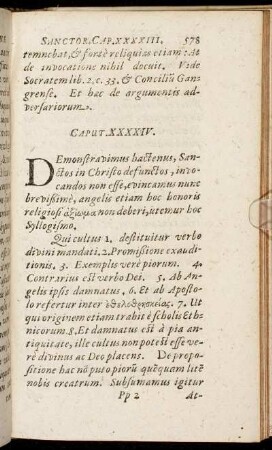 SANCTOR. CAP. XXXXIII. 578
temnebat, & fortè reliquias etiam: At
de invocatione nihil docuit. Vide
Socratem lib. 2. c. 33, & Conciliũ Gan-
grense. Et hac de argumentis ad-
versariorum.
CAPUT. XXXXIV.
DEmonstravimus hactenus, San-
ctos in Christo defunctos, invo-
candos non esse, evincamus nunc
brevißimè, angelis etiam hoc honoris
religiosi ἀξίωμα non deberi, utemur hoc
Syllogismo.
Qui cultus 1. destituitur verbo
divini mandati. 2. Promißione exaudi-
tionis. 3. Exemplis verè piorum. 4.
Contrarius est verbo Dei. 5. Ab An-
gelis ipsis damnatus, 6. Et ab Aposto-
lo refertur inter ἐθελοθρησκείας. 7. Ut
qui originem etiam trahit è scholis Eth-
nicorum. 8. Et damnatus est à pia an-
tiquitate, ille cultus non potest esse ve-
rè divinus ac Deo placens. De propo-
sitione hac nõ puto piorũ quẽquam lite
nobis creatrum. Subsumamus igitur
Pp 2 At-